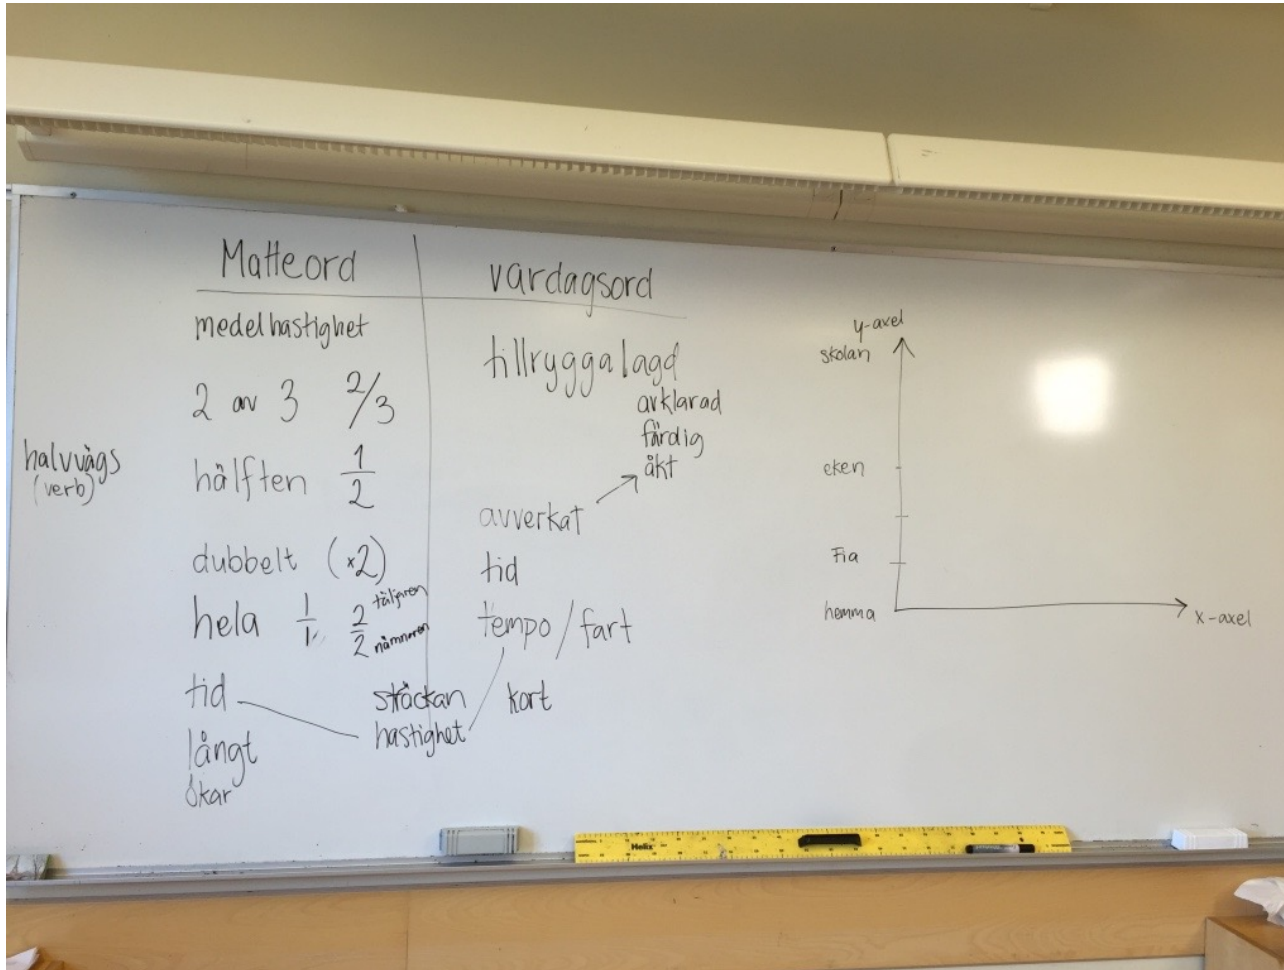 Matteord
medelhastighet
2 av 3 2/3
halvvägs
(verb)
hälften 1/2
dubbelt (×2)
hela 1/1 2/2 täljaren
nämnaren
tid
långt
ökar
sträckan
hastighet
vardagsord
tillryggalagd
avklarad
färdig
åkt
avverkat
tid
tempo/fart
kort
y-axel
skolan
eken
Fia
hemma
x-axel
Helix